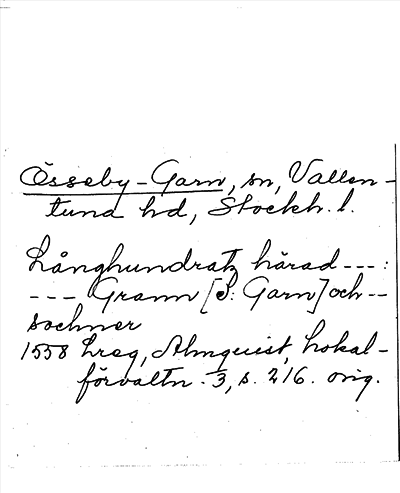 Össeby-Garn, sn, Vallen-
tuna hd, Stockh. l.
Långhundratz härad ---:
--- Grann [S: Garn] och --
sochner
1558 Lreg, Almquist, Lokal-
förvaltn. 3, s. 216. orig.